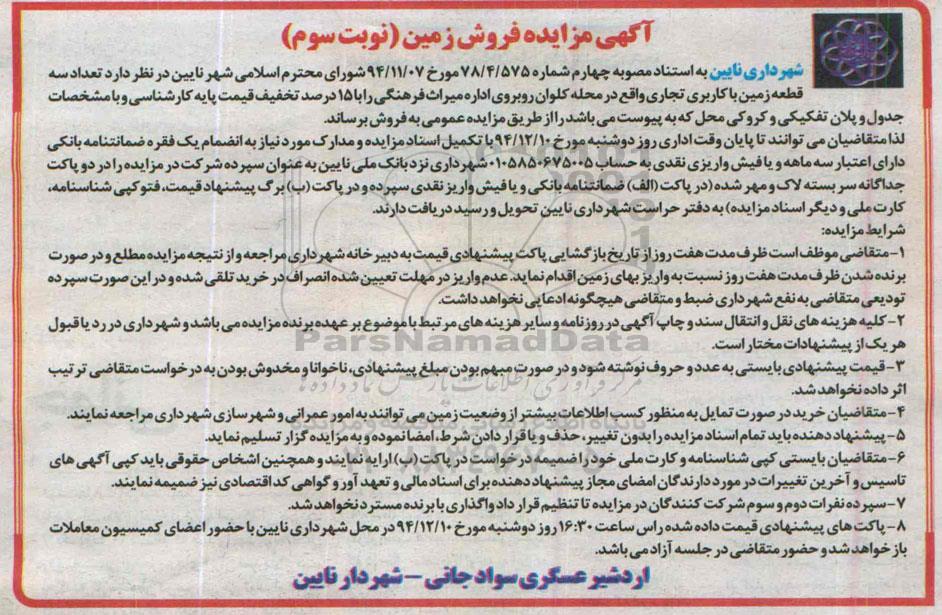 آگهی مزایده فروش زمین (نوبت سوم)
شهرداری نایین به استناد مصوبه چهارم شماره ۷۸/۴/۵۷۵ مورخ ۹۴/۱۱/۰۷ شورای محترم اسلامی شهر نایین در نظر دارد تعداد سه
قطعه زمین با کاربری تجاری واقع در محله کلوان روبروی اداره میراث فرهنگی را با ۱۵ درصد تخفیف قیمت پایه کارشناسی و با مشخصات
جدول و پلان تفکیکی و کروکی محل که به پیوست می باشد را از طریق مزایده عمومی به فروش برساند.
لذا متقاضیان می توانند تا پایان وقت اداری روز دوشنبه مورخ ۹۴/۱۲/۱۰ با تکمیل اسناد مزایده و مدارک مورد نیاز به انضمام یک فقره ضمانتنامه بانکی
دارای اعتبار سه ماهه و یا فیش واریزی نقدی به حساب ۰۱۰۵۸۵۰۶۷۵۰۰۵ شهرداری نزد بانک ملی نایین به عنوان سپرده شرکت در مزایده را در دو پاکت
جداگانه سر بسته لاک و مهر شده (در پاکت (الف) ضمانتنامه بانکی و یا فیش واریز نقدی سپرده و در پاکت (ب) برگ پیشنهاد قیمت، فتوکپی شناسنامه،
کارت ملی و دیگر اسناد مزایده) به دفتر حراست شهرداری نایین تحویل و رسید دریافت دارند.
شرایط مزایده:
۱- متقاضی موظف است ظرف مدت هفت روز از تاریخ بازگشایی پاکت پیشنهادی قیمت به دبیر خانه شهرداری مراجعه و از نتیجه مزایده مطلع و در صورت
برنده شدن ظرف مدت هفت روز نسبت به واریز بهای زمین اقدام نماید. عدم واریز در مهلت تعیین شده انصراف در خرید تلقی شده و در این صورت سپرده
تودیعی متقاضی به نفع شهرداری ضبط و متقاضی هیچگونه ادعایی نخواهد داشت.
۲- کلیه هزینه های نقل و انتقال سند و چاپ آگهی در روزنامه و سایر هزینه های مرتبط با موضوع بر عهده برنده مزایده می باشد و شهرداری در رد یا قبول
هر یک از پیشنهادات مختار است.
ParsNamadData
۳- قیمت پیشنهادی بایستی به عدد و حروف نوشته شود و در صورت مبهم بودن مبلغ پیشنهادی، ناخوانا و مخدوش بودن به درخواست متقاضی ترتیب
اثر داده نخواهد شد.
۴- متقاضیان خرید در صورت تمایل به منظور کسب اطلاعات بیشتر از وضعیت زمین می توانند به امور عمرانی و شهرسازی شهرداری مراجعه نمایند.
۵- پیشنهاد دهنده باید تمام اسناد مزایده را بدون تغییر، حذف و یا قرار دادن شرط، امضا نموده و به مزایده گزار تسلیم نماید.
۶- متقاضیان بایستی کپی شناسنامه و کارت ملی خود را ضمیمه درخواست در پاکت (ب) ارایه نمایند و همچنین اشخاص حقوقی باید کپی آگهی های
تاسیس و آخرین تغییرات در مورد دارندگان امضای مجاز پیشنهاد دهنده برای اسناد مالی و تعهد آور و گواهی کد اقتصادی نیز ضمیمه نمایند.
۷- سپرده نفرات دوم و سوم شرکت کنندگان در مزایده تا تنظیم قرار داد واگذاری با برنده مسترد نخواهد شد.
۸- پاکت های پیشنهادی قیمت داده شده راس ساعت ۱۶:۳۰ روز دوشنبه مورخ ۹۴/۱۲/۱۰ در محل شهرداری نایین با حضور اعضای کمیسیون معاملات
باز خواهد شد و حضور متقاضی در جلسه آزاد می باشد.
اردشیر عسگری سوادجانی - شهردار نایین